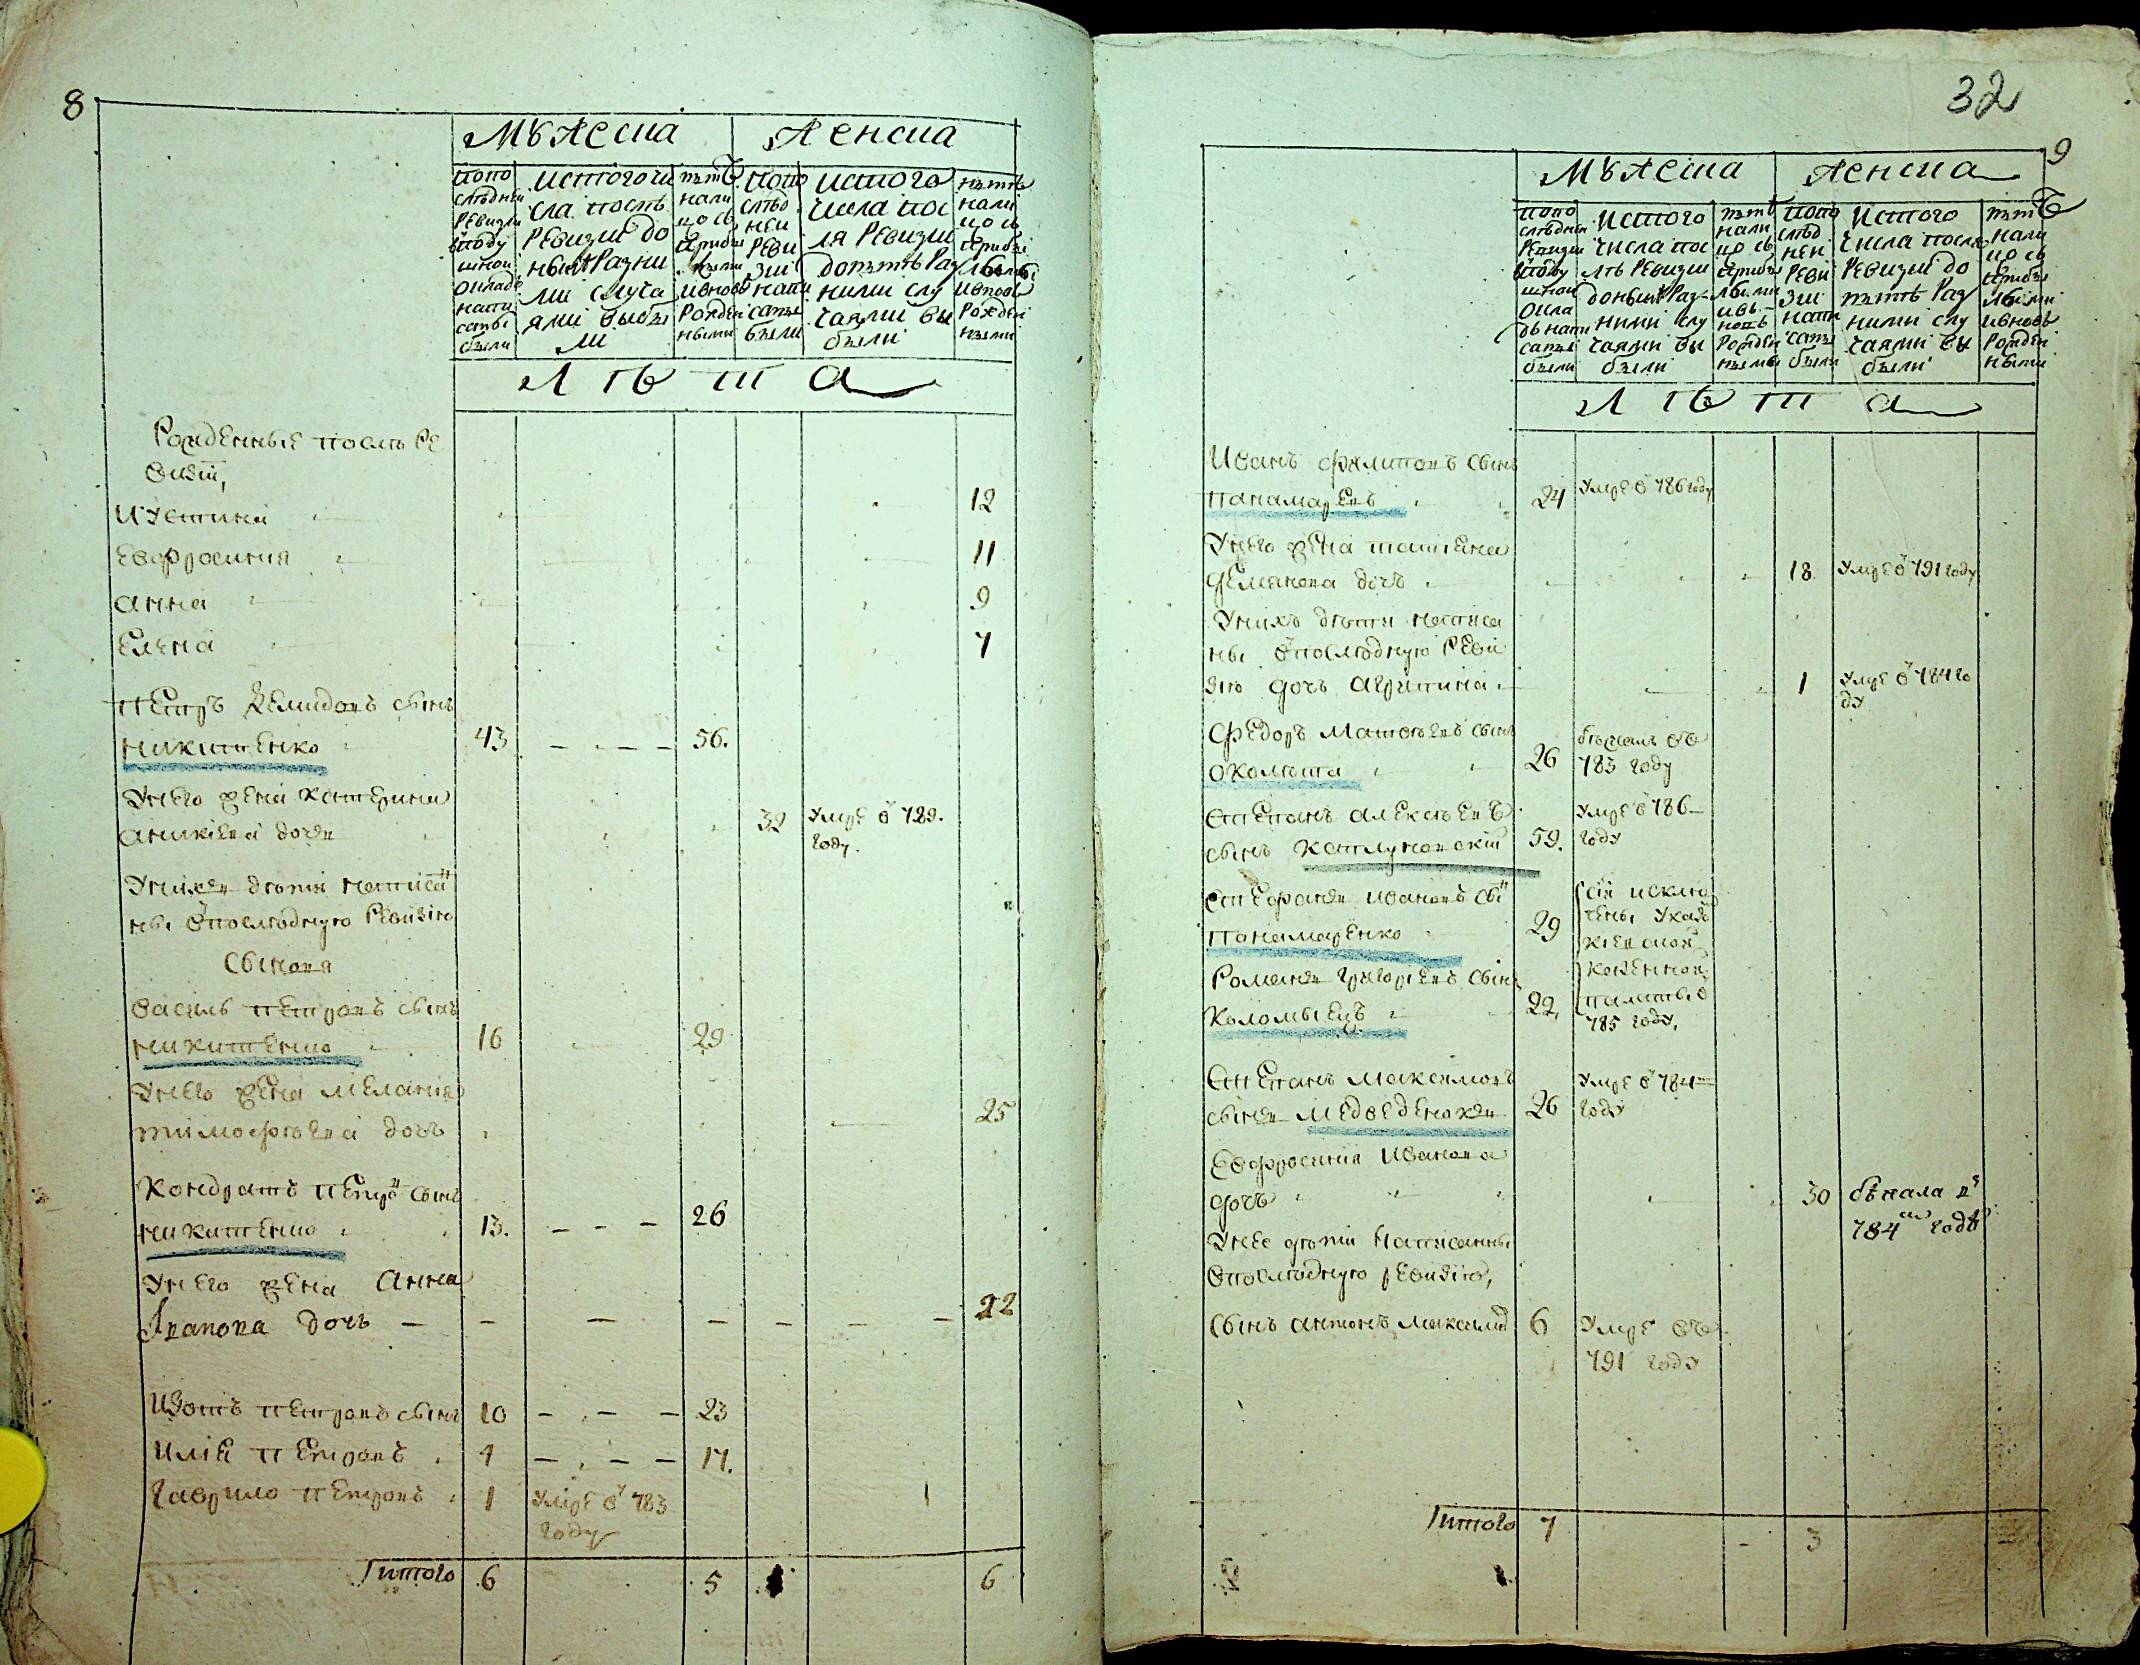 8
Мужеска
Женска
попо
следней
Ревизии
в поду
шной
окладе
напи
саны
были
ис того чи
сла после
Ревизии до
ныне Разни
ми случа
ями выбы
ли
ныне
нали
цо съ
прибы
лыми
и вновь
Рожден
ными
попо
след
ней
Реви
зии
напи
саны
были
ис того
числа пос
ля Ревизии
до ныне Раз
ними слу
чаями вы
были
ныне
нали
цо съ
прибы
лыми
и вновь
Рожден
ными
Лѣта
Рожденные послѣ Ре
визіи,
Иустина 12
Евфросиния 11
Анна 9
Елена 7
Петръ Демидовъ сынъ
Никитенко 43 56.
У него жена Катерина
Аникиева дочь 32 умре в 789.
году.
У них дети написа
ны в последную Ревизию
Сыновя
Василь Петровъ сынъ
Никитенко 16 29
У него жена Мелания
Тимофѣева дочъ 25
Кондратъ Петро сынъ
Никитенко 13. 26
У него жена Анна
Іванова дочь 22
Изотъ Петровъ сынъ 10 23
Илія Петровъ 4 17.
Гаврило Петровъ 1 умре в 783
году
Итого 6 5 6
32
9
Мужеска
Женска
попо
следней
Ревизии
в поду
шной
окла
де напи
саны
были
ис того
числа пос
лѣ Ревизии
до ныне Раз
ними слу
чаями вы
были
ныне
нали
цо съ
прибы
лыми
и вновь
Рожден
ными
попо
след
ней
Реви
зии
напи
саны
были
ис того
числа после
Ревизии до
ныне Раз
ними слу
чаями вы
были
ныне
нали
цо съ
прибы
лыми
и вновь
Рожден
ными
Лѣта
Иванъ Филиповъ сынъ
Панамаревъ 24 умре в 786 году
У него жена Татиена
Демянова дочъ 18 умре в 791 году
У нихъ дѣти написа
ны в последную Реви
зию дочь Агрипина 1 умре в 784 го
ду
Федоръ Матвѣевъ сынъ
Околита 26 бѣжалъ въ
783 году
Степанъ Алексѣевъ
сынъ Котляновскіи 59. умре в 786
году
Стефанъ Ивановъ сы
Панамаренко 29
Романъ Григориевъ сынъ
Коломыецъ 22,
Сіи исклю
чены указо
Киевской
Казенной
палаты в
785 году,
Степанъ Максимовъ
сынъ Медведенокъ 26 умре в 784
году
Евфросиния Иванова
дочъ 30 бѣжала в
784 годѣ
У нее дѣти написанны
в последную ревизию,
Сынъ Антонъ Максимо 6 умре въ
791 году
Итого 7 3